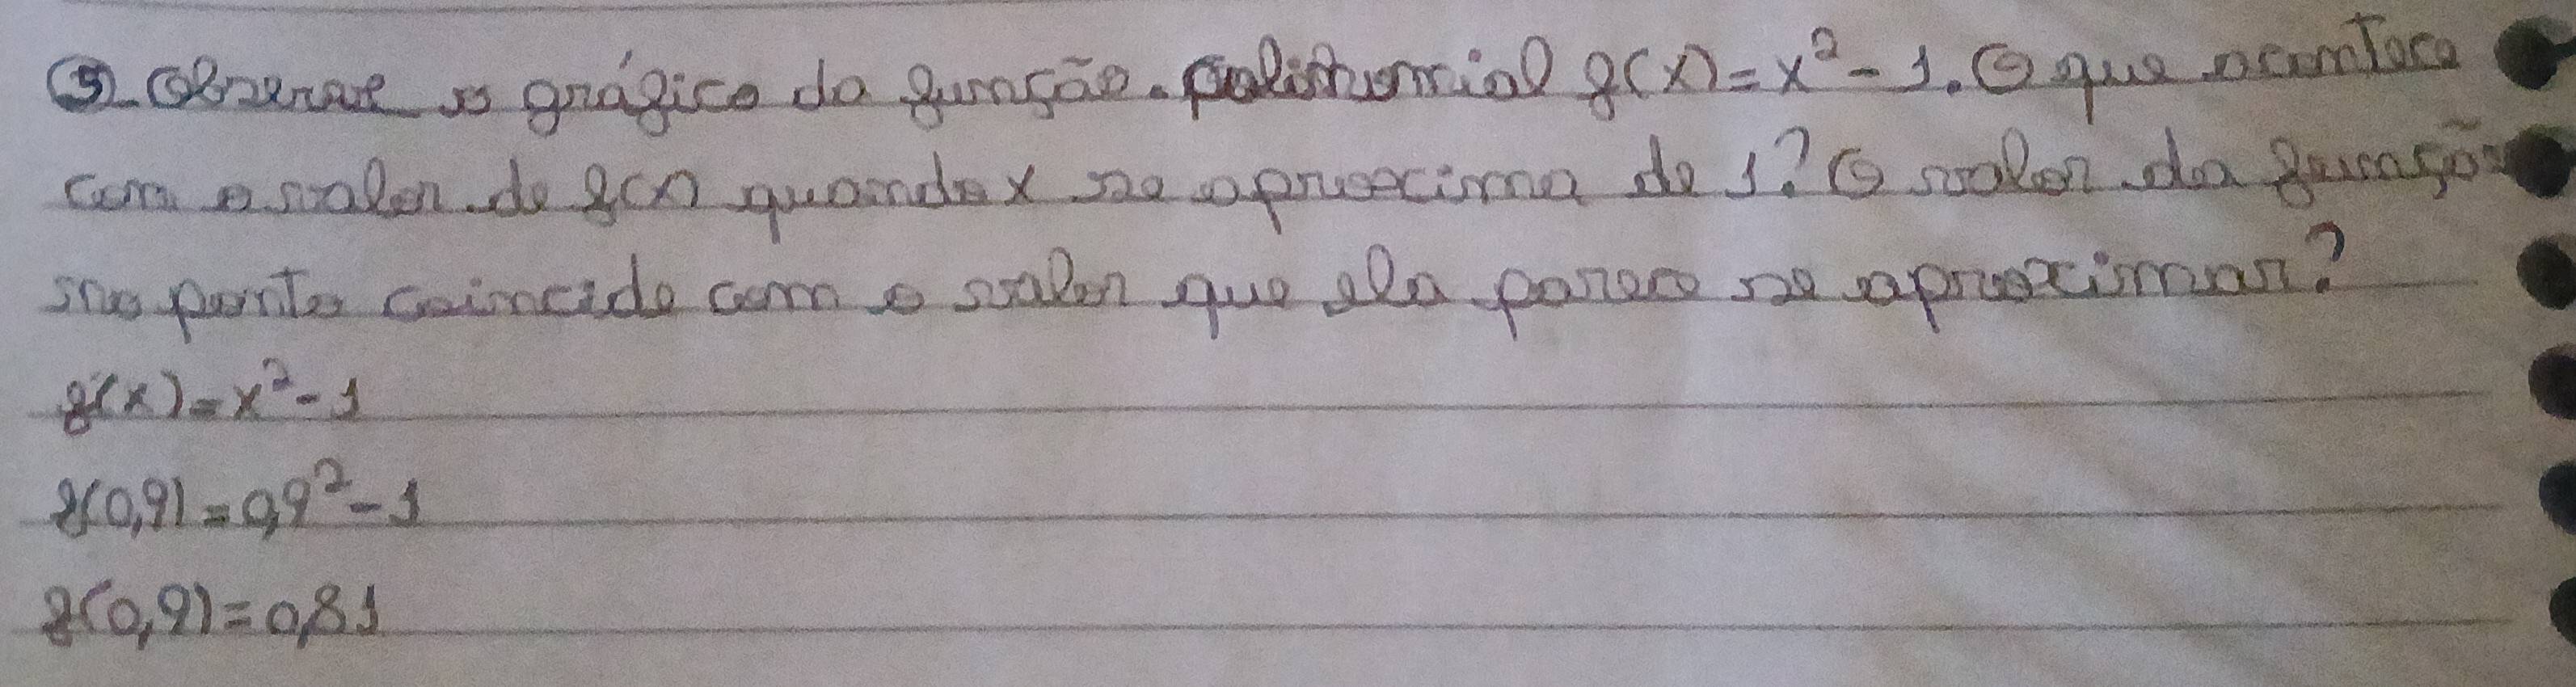 5. Observe o gráfico da função polinomial f(x) = x² - 1. O que acontece
com o valor de f(x) quando x se aproxima de 1? O valor da função
no ponto coincide com o valor que ela parece se aproximar?
f(x) = x² - 1
f(0,9) = 0,9² - 1
f(0,9) = 0,81